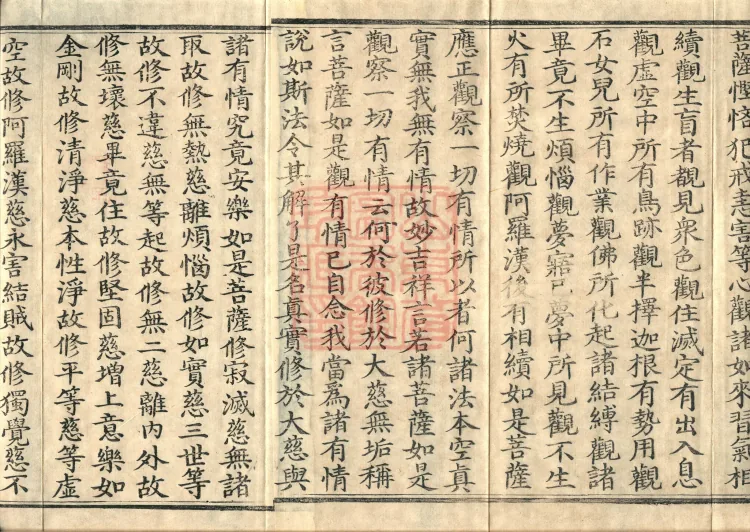 菩薩慳悋犯戒恚害等心觀諸如來習氣相
續觀生盲者覩見衆色觀住滅定有出入息
觀虛空中所有鳥跡觀半擇迦根有勢用觀
石女兒所有作業觀佛所化起諸結縛觀諸
畢竟不生煩惱觀夢寤已夢中所見觀不生
火有所焚燒觀阿羅漢後有相續如是菩薩
應正觀察一切有情所以者何諸法本空真
實無我無有情故妙吉祥言若諸菩薩如是
觀察一切有情云何於彼修於大慈無垢稱
言菩薩如是觀有情已自念我當爲諸有情
說如斯法令其解了是名真實修於大慈與
諸有情究竟安樂如是菩薩修寂滅慈無諸
取故修無熱慈離煩惱故修如實慈三世等
故修不違慈無等起故修無二慈離內外故
修無壞慈畢竟住故修堅固慈增上意樂如
金剛故修清淨慈本性淨故修平等慈等虛
空故修阿羅漢慈永害結賊故修獨覺慈不